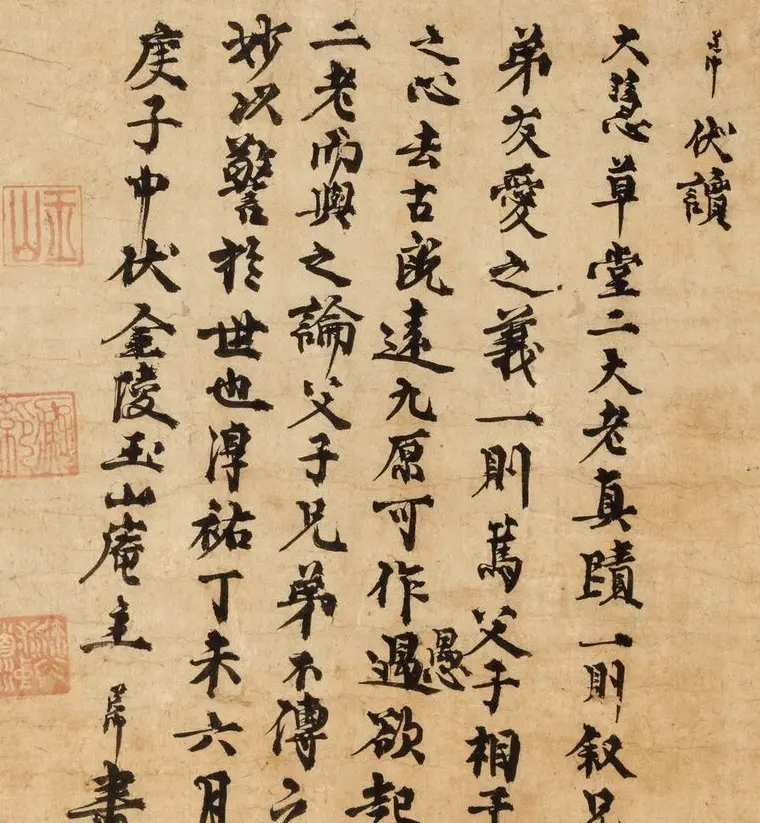 道冲伏讀
大慧草堂二大老真蹟一則叙兄
弟友愛之義一則篤父子相予
之心去古既遠九原可作遇愚欲起
二老而與之論父子兄弟不傳之
妙以警於世也淳祐丁未六月
庚子中伏金陵玉山庵主道冲書
玉山